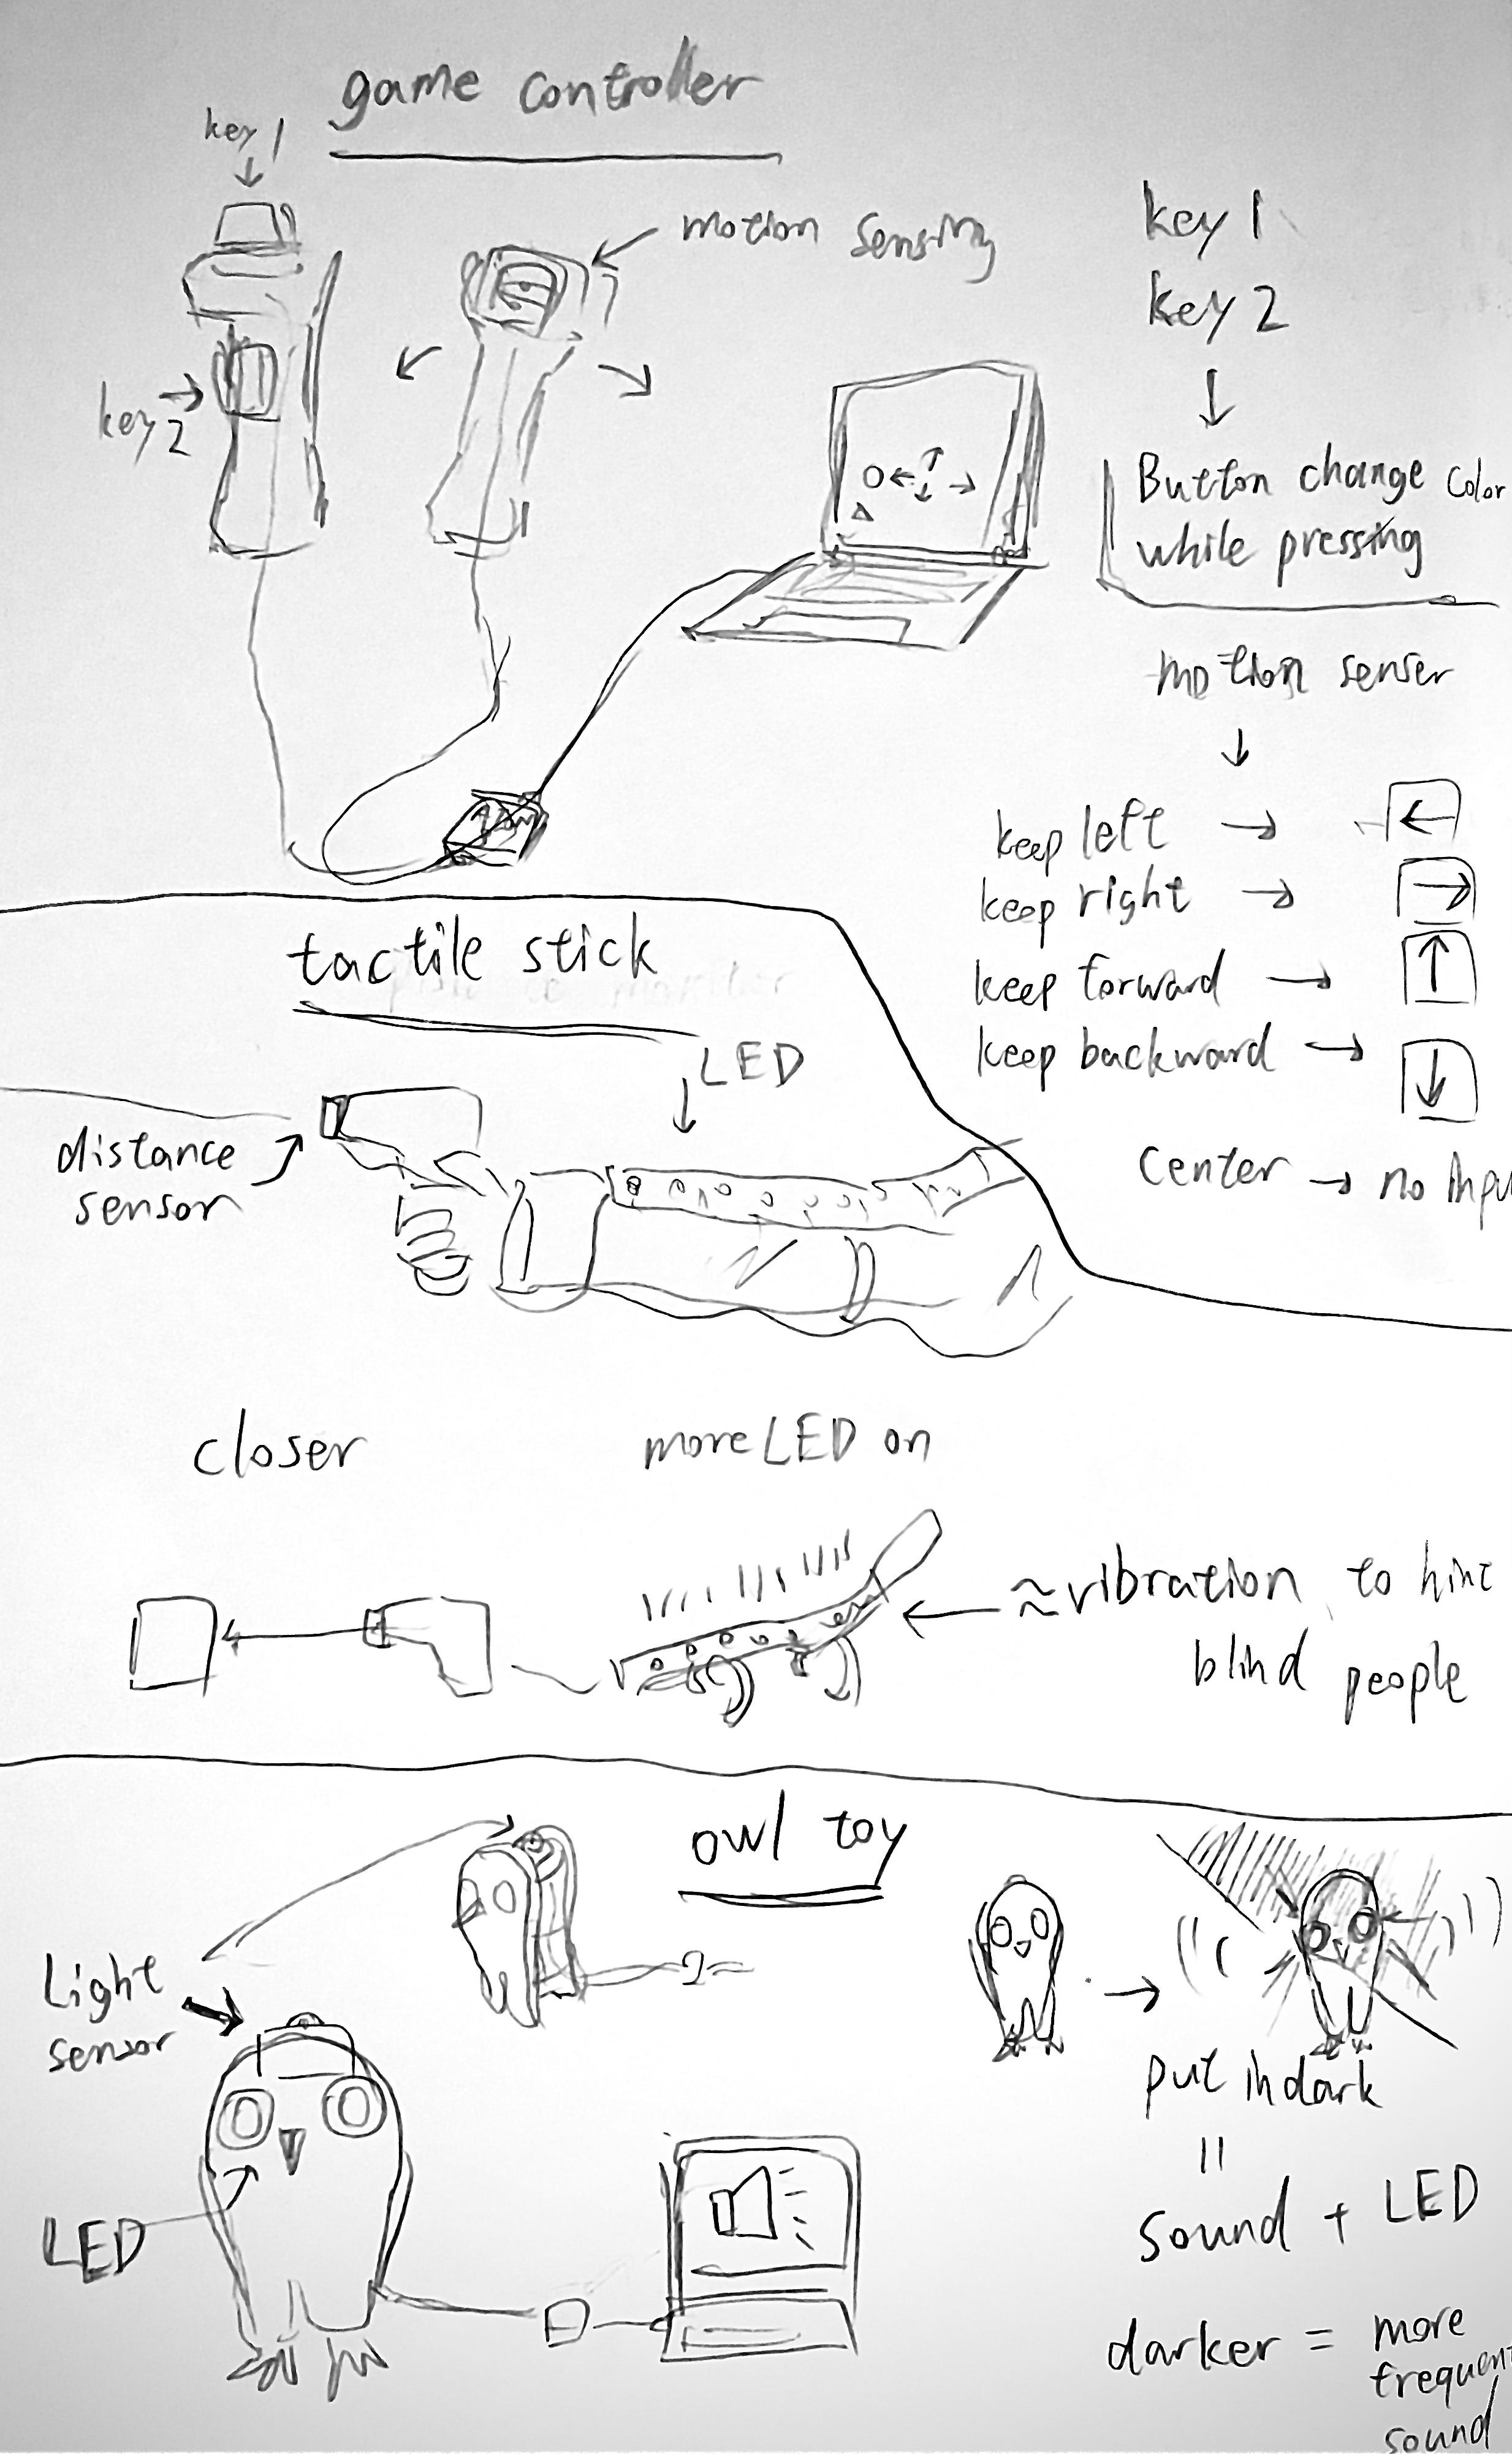 game controller
key 1
motion sensing
key 2
key 1
key 2
Button change color
while pressing
motion senser
keep left
keep right
keep forward
keep backward
Center → no inpu
tactile stick
LED
distance
sensor
closer
more LED on
≈vibration to hint
blind people
owl toy
Light
sensor
LED
put in dark
=
sound + LED
darker = more
frequent
sound